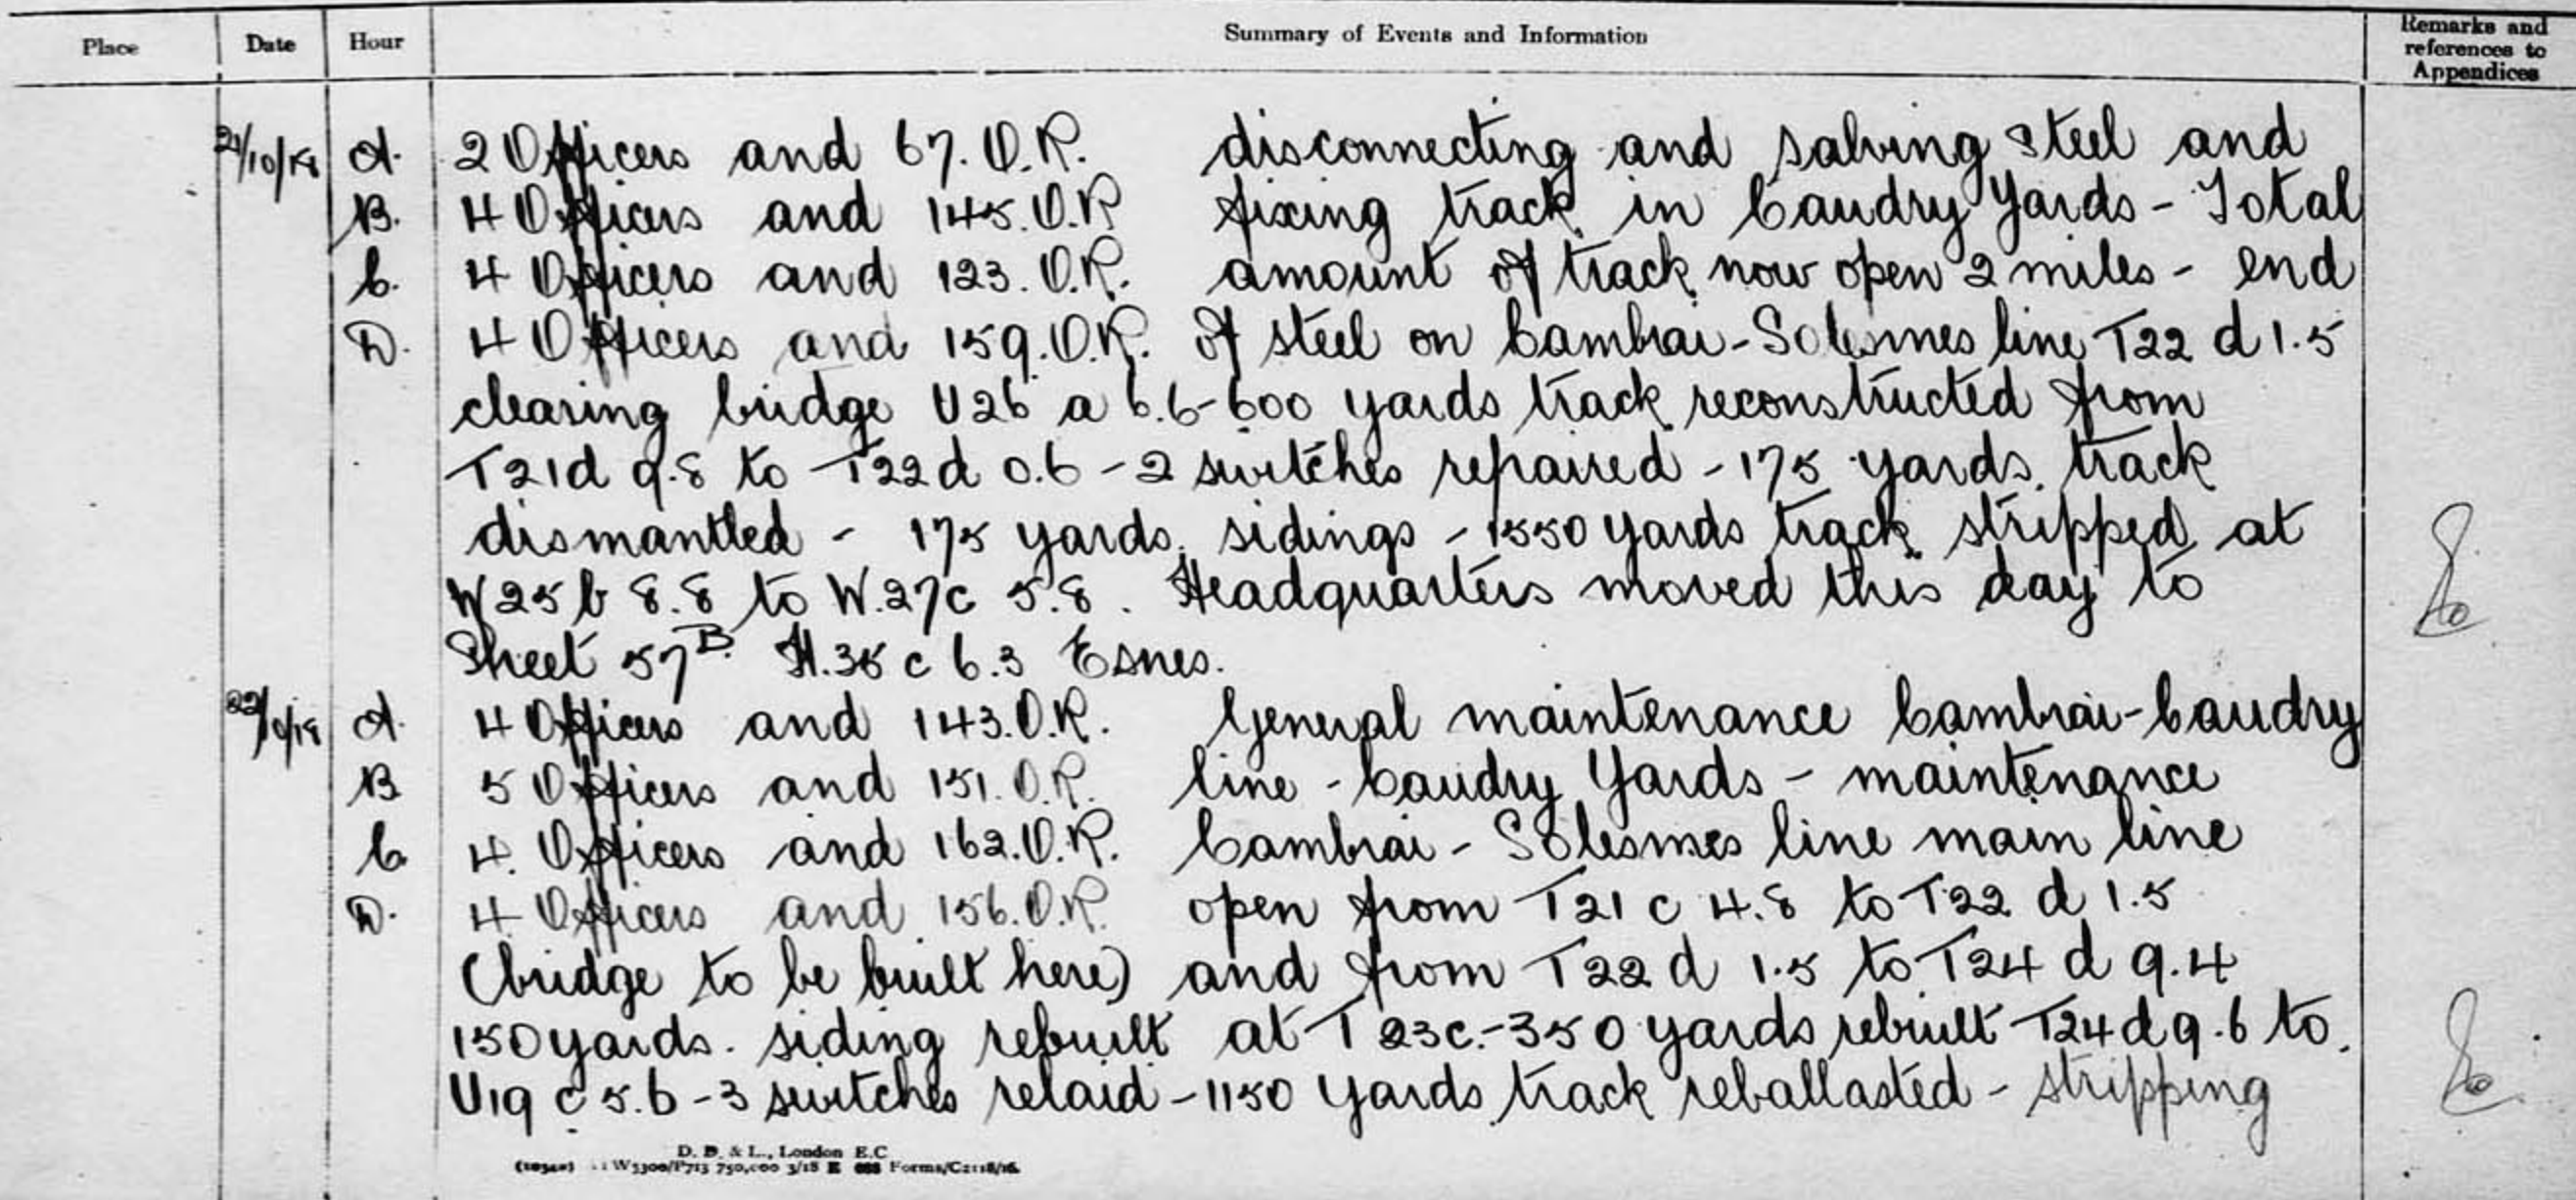 Place Date Hour Summary of Events and Information Remarks and references to Appendices
21/10/18 A. 2 Officers and 67. O.R. disconnecting and salving steel and
B. 4 Officers and 145. O.R fixing track in Caudry Yards - Total
C. 4 Officers and 123. O.R. amount of track now open 2 miles - end
D. 4 Officers and 159. O.R. of steel on Cambrai-Solesmes line T22 d 1.5
clearing bridge U26 a 6.6 - 600 yards track reconstructed from
T21d 9.8 to T22d 0.6 - 2 switches repaired - 175 yards. track
dismantled - 175 yards. sidings - 1550 yards track stripped at
W25b 8.8 to W.27c 5.8. Headquarters moved this day to
Sheet 57B. H.35 c 6.3 Esnes.
22/10/18 A. 4 Officers and 143. O.R. General maintenance Cambrai-Caudry
B 5 Officers and 151. O.R. line - Caudry Yards - maintenance
C 4. Officers and 162. O.R. Cambrai - Solesmes line main line
D. 4 Officers and 156. O.R. open from T21 c 4.8 to T22 d 1.5
(bridge to be built here) and from T22 d 1.5 to T24 d 9.4
150 yards. siding rebuilt at T 23c. - 350 yards rebuilt T24d 9.6 to.
U19 c 5.6 - 3 switches relaid - 1150 yards track reballasted - stripping
D. D. & L., London E.C
W5300/P713 750,000 3/18 E 688 Forms/C2118/16.